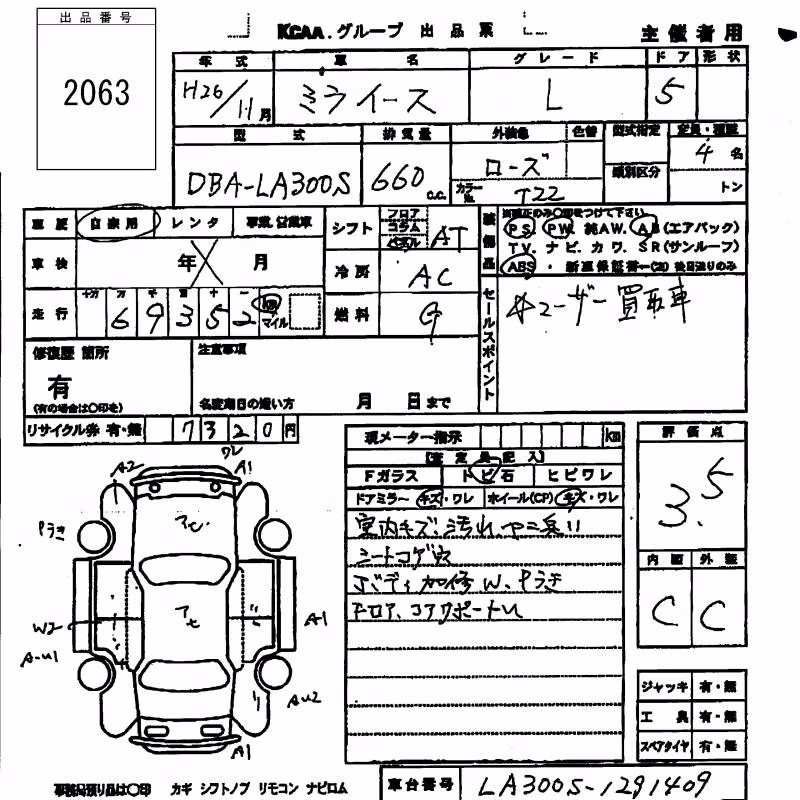 出品番号
2063
KCAA.グループ 出品票
主催者用
年式 車名 グレード ドア 形状
H26/11月 ミライース L 5
型式 排気量 外装色 色替 型式指定 定員・積載
DBA-LA300S 660c.c. ローズ 類別区分 4名
カラーNo. T22 トン
車歴 自家用 レンタ シフト フロア コラム パネル AT
装備品
PS PW 純AW. AB(エアバック)
TV. ナビ. カワ. SR(サンルーフ)
ABS
車検 年 月 冷房 AC
走行 十万 万 千 百 十 一 km マイル 燃料 G
6 9 3 5 2
セールスポイント
ユーザー買取車
修復歴 箇所 注意事項
有
(有の場合は〇印を)
名変期日の遅い方 月 日まで
リサイクル券 有・無 7320円
現メーター指示 km
【査定員記入】
評価点
3.5
Fガラス トビ石 ヒビワレ
ドアミラー キズ・ワレ ホイール(CP) キズ・ワレ
室内キズ、汚れ、ヤニ臭い
シートコゲ穴
フロア、コアサポートU
内装 外装
C C
ワレ
A2 A1
Pうき
W2
A1
A-U1
AU2
A1
ジャッキ 有・無
工具 有・無
スペアタイヤ 有・無
事務局預り品は〇印 カギ シフトノブ リモコン ナビロム
車台番号 LA300S-1291409